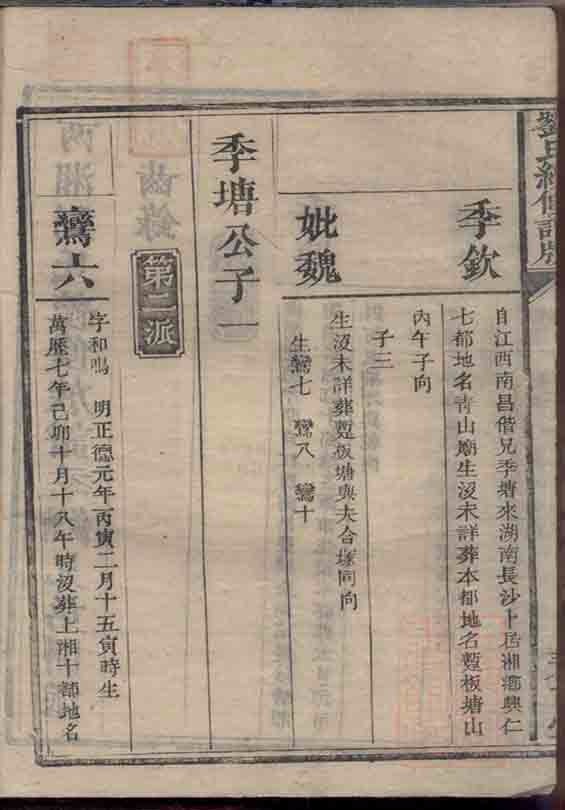 劉氏續修譜牒
季欽
自江西南昌偕兄季塘來湖南長沙卜居湘鄉興仁
七都地名青山廟生沒未詳葬本都地名蹔板塘山
丙午子向
子三
妣魏
生沒未詳葬蹔板塘與夫合塚同向
生鸞七 鸞八 鸞十
季塘公子一
齒錄
第二派
鸞六
字和鳴 明正德元年丙寅二月十五寅時生
萬歷七年己卯十月十八午時沒葬上湘十都地名